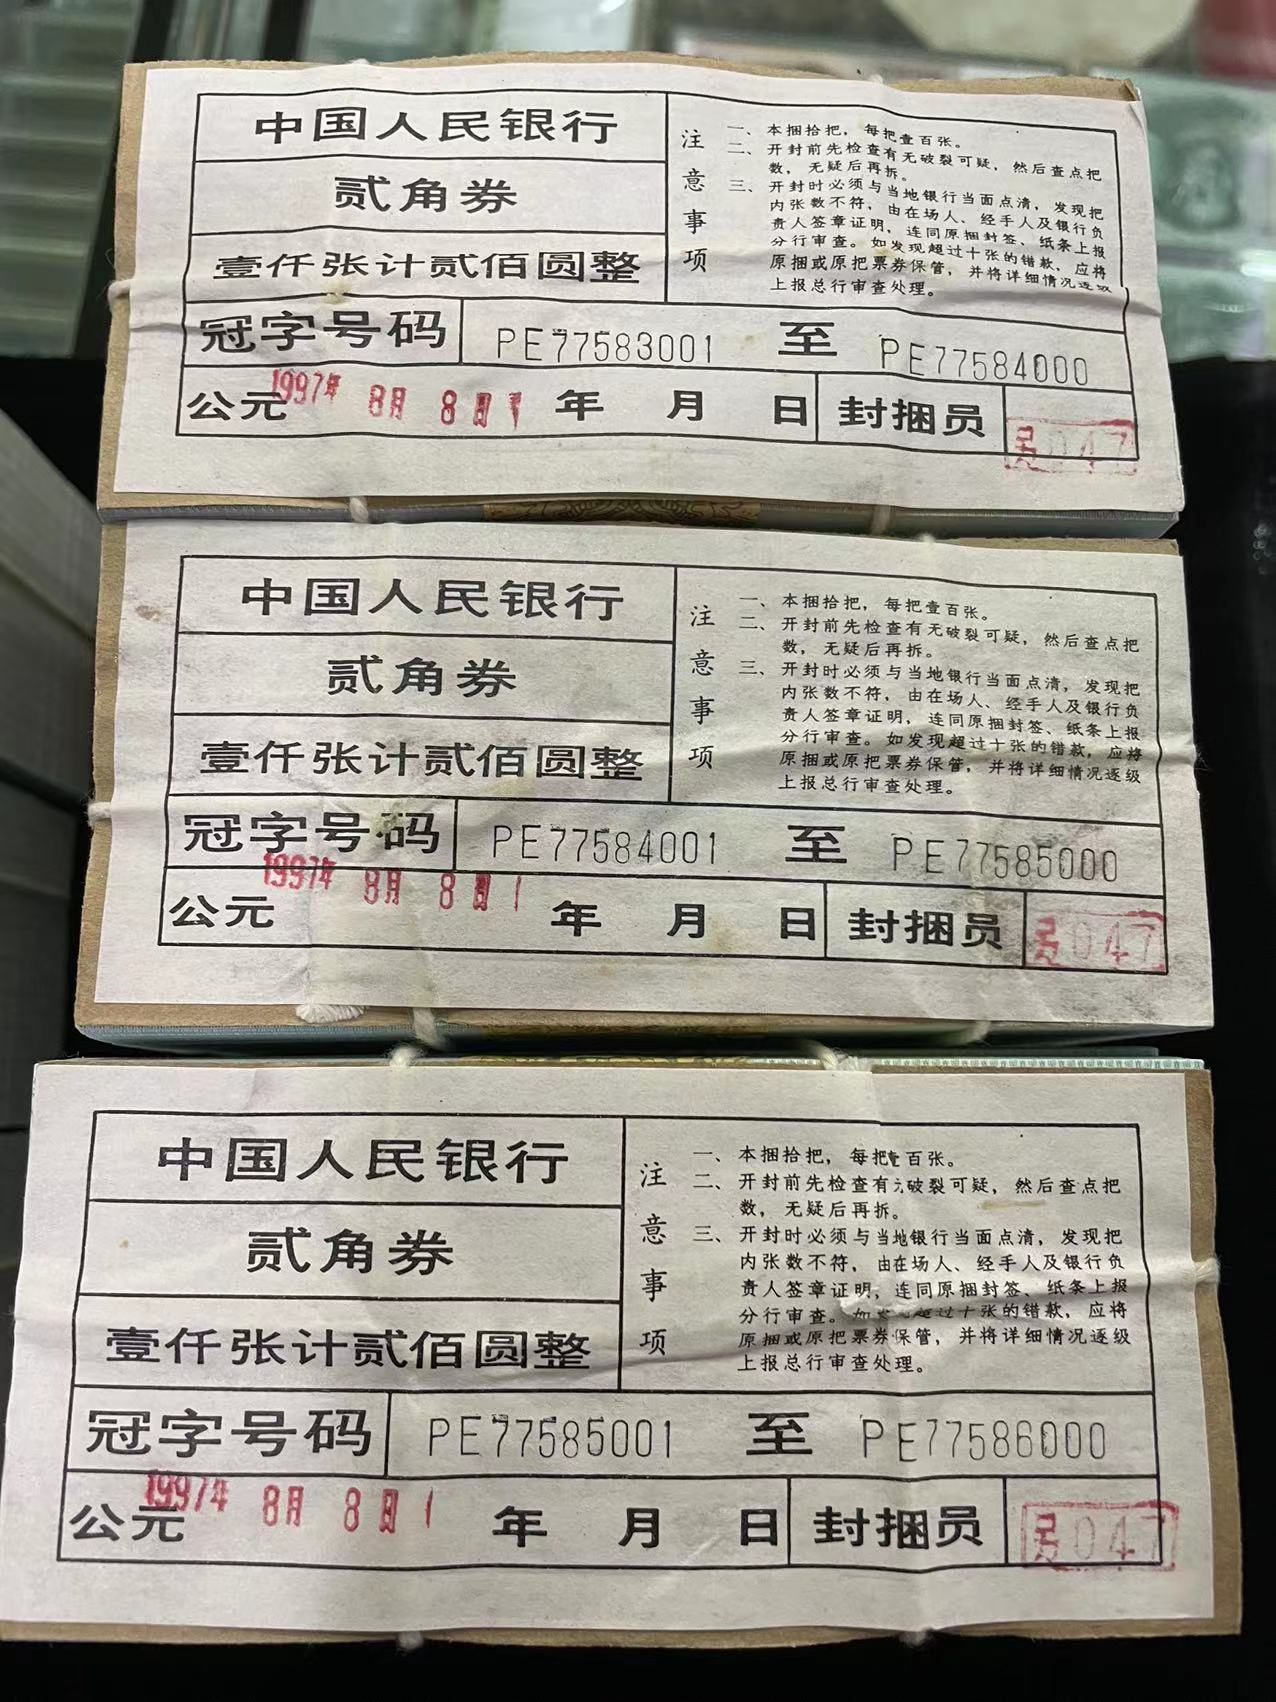 中国人民银行
贰角券
壹仟张计贰佰圆整
注意事项
一、本捆拾把，每把壹百张。
二、开封前先检查有无破裂可疑，然后查点把
数，无疑后再拆。
三、开封时必须与当地银行当面点清，发现把
内张数不符，由在场人、经手人及银行负
责人签章证明，连同原捆封签、纸条上报
分行审查。如发现超过十张的错款，应将
原捆或原把票券保管，并将详细情况逐级
上报总行审查处理。
冠字号码 PE77583001 至 PE77584000
公元 1997年 8月 8日 年 月 日 封捆员 047
中国人民银行
贰角券
壹仟张计贰佰圆整
注意事项
一、本捆拾把，每把壹百张。
二、开封前先检查有无破裂可疑，然后查点把
数，无疑后再拆。
三、开封时必须与当地银行当面点清，发现把
内张数不符，由在场人、经手人及银行负
责人签章证明，连同原捆封签、纸条上报
分行审查。如发现超过十张的错款，应将
原捆或原把票券保管，并将详细情况逐级
上报总行审查处理。
冠字号码 PE77584001 至 PE77585000
公元 1997年 8月 8日 年 月 日 封捆员 047
中国人民银行
贰角券
壹仟张计贰佰圆整
注意事项
一、本捆拾把，每把壹百张。
二、开封前先检查有无破裂可疑，然后查点把
数，无疑后再拆。
三、开封时必须与当地银行当面点清，发现把
内张数不符，由在场人、经手人及银行负
责人签章证明，连同原捆封签、纸条上报
分行审查。如发现超过十张的错款，应将
原捆或原把票券保管，并将详细情况逐级
上报总行审查处理。
冠字号码 PE77585001 至 PE77586000
公元 1997年 8月 8日 年 月 日 封捆员 047